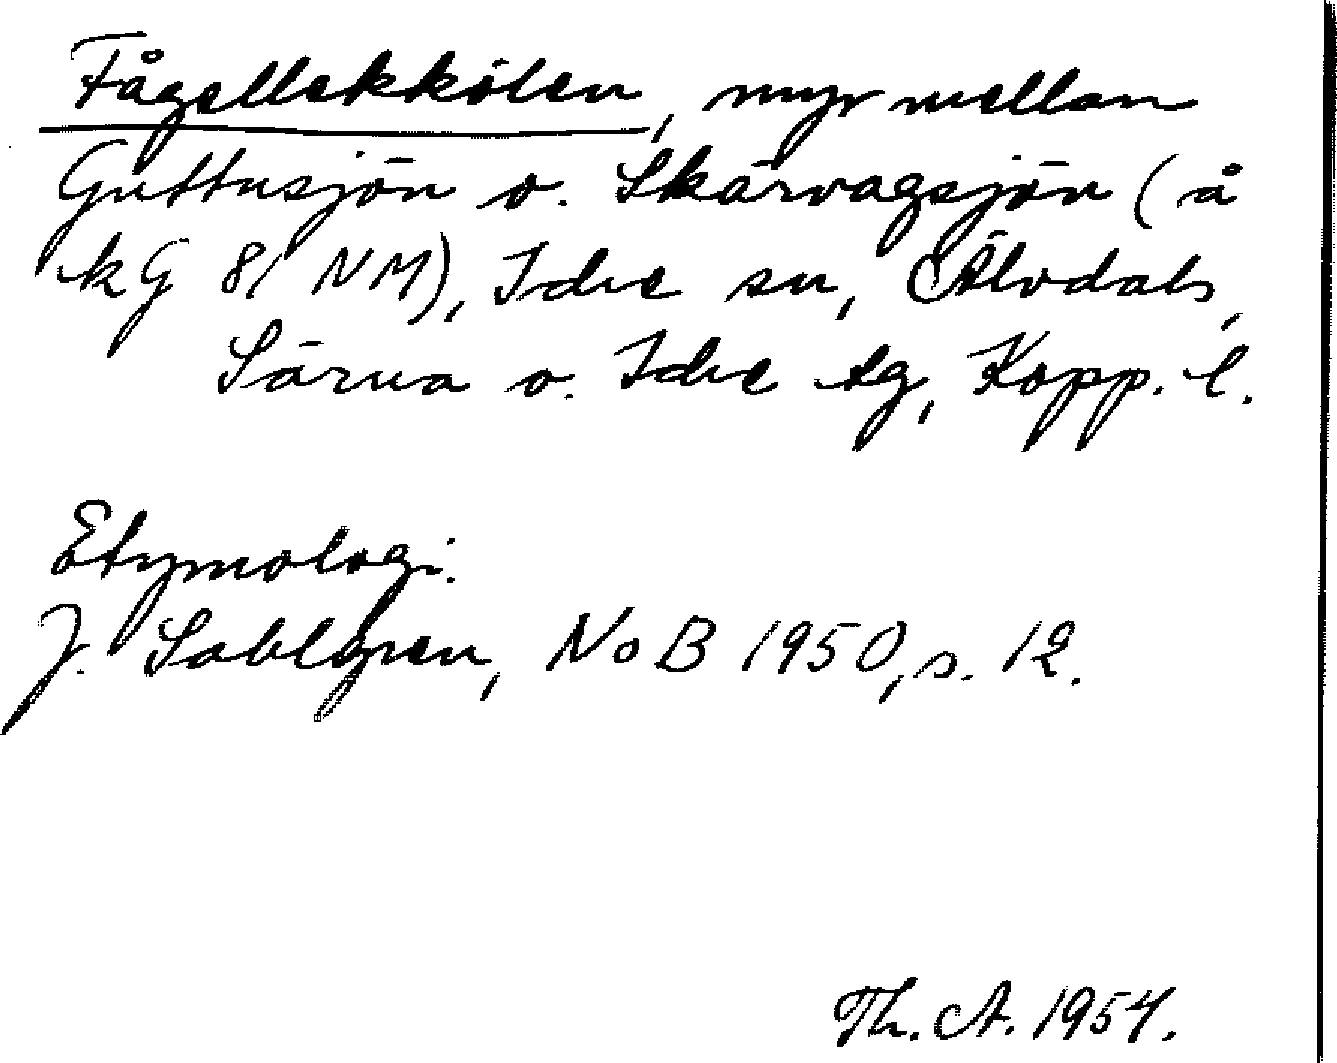 Fågellekkölen, myr mellan
Guttusjön o. Skärvagsjön (å
kG 81 NM), Idre sn, Älvdals,
Särna o. Idre tg, Kopp. l.
Etymologi.
J. Sahlgren, NoB 1950, s. 12.
Th. A. 1954.